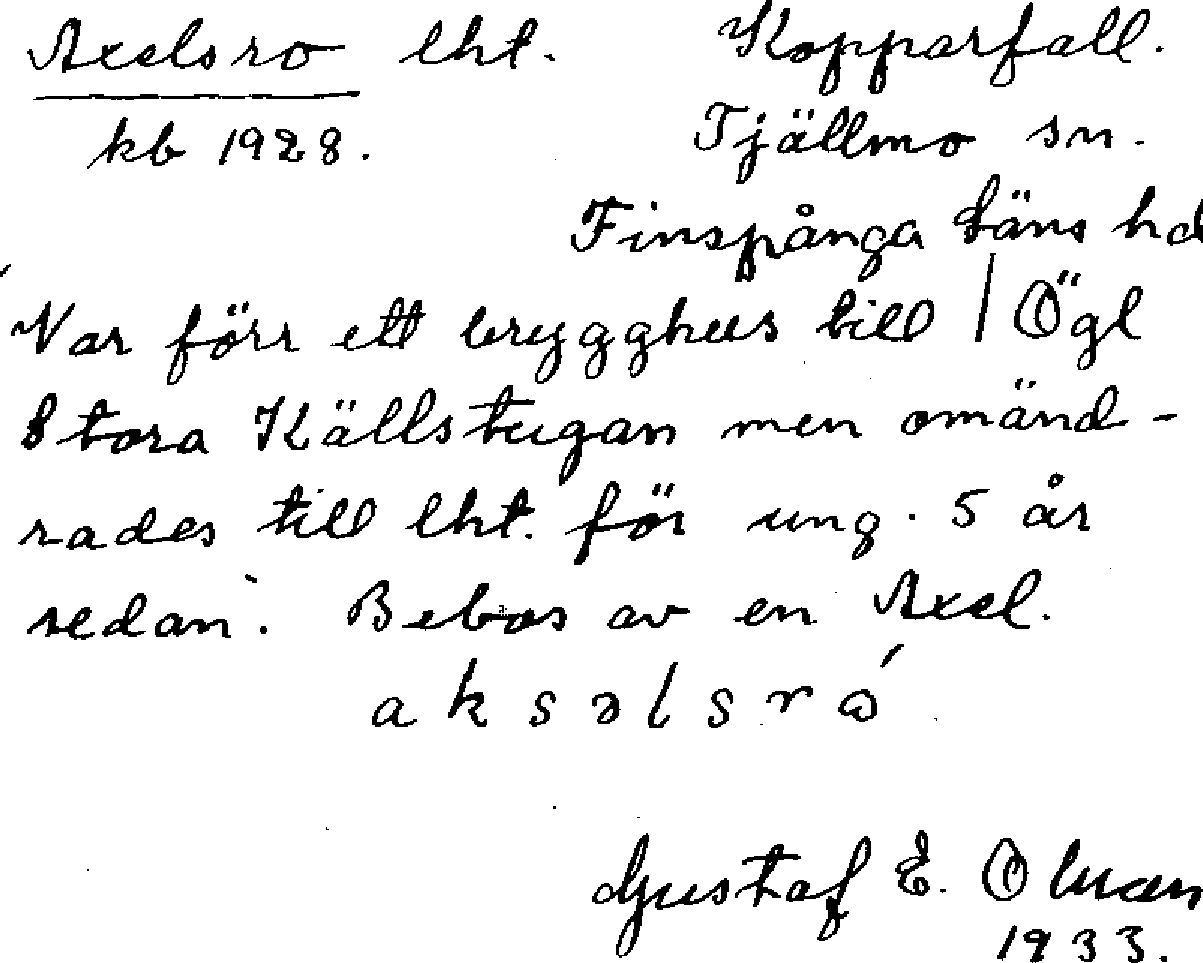 Axelsro lht. Kopparfall.
kb 1928. Tjällmo sn.
Finspånga läns hd
Var förr ett brygghus till / Ögl
Stora Källstugan men omänd-
rades till lht. för ung. 5 år
sedan. Bebos av en Axel.
aksəlsró
Gustaf E. Ohman
1933.